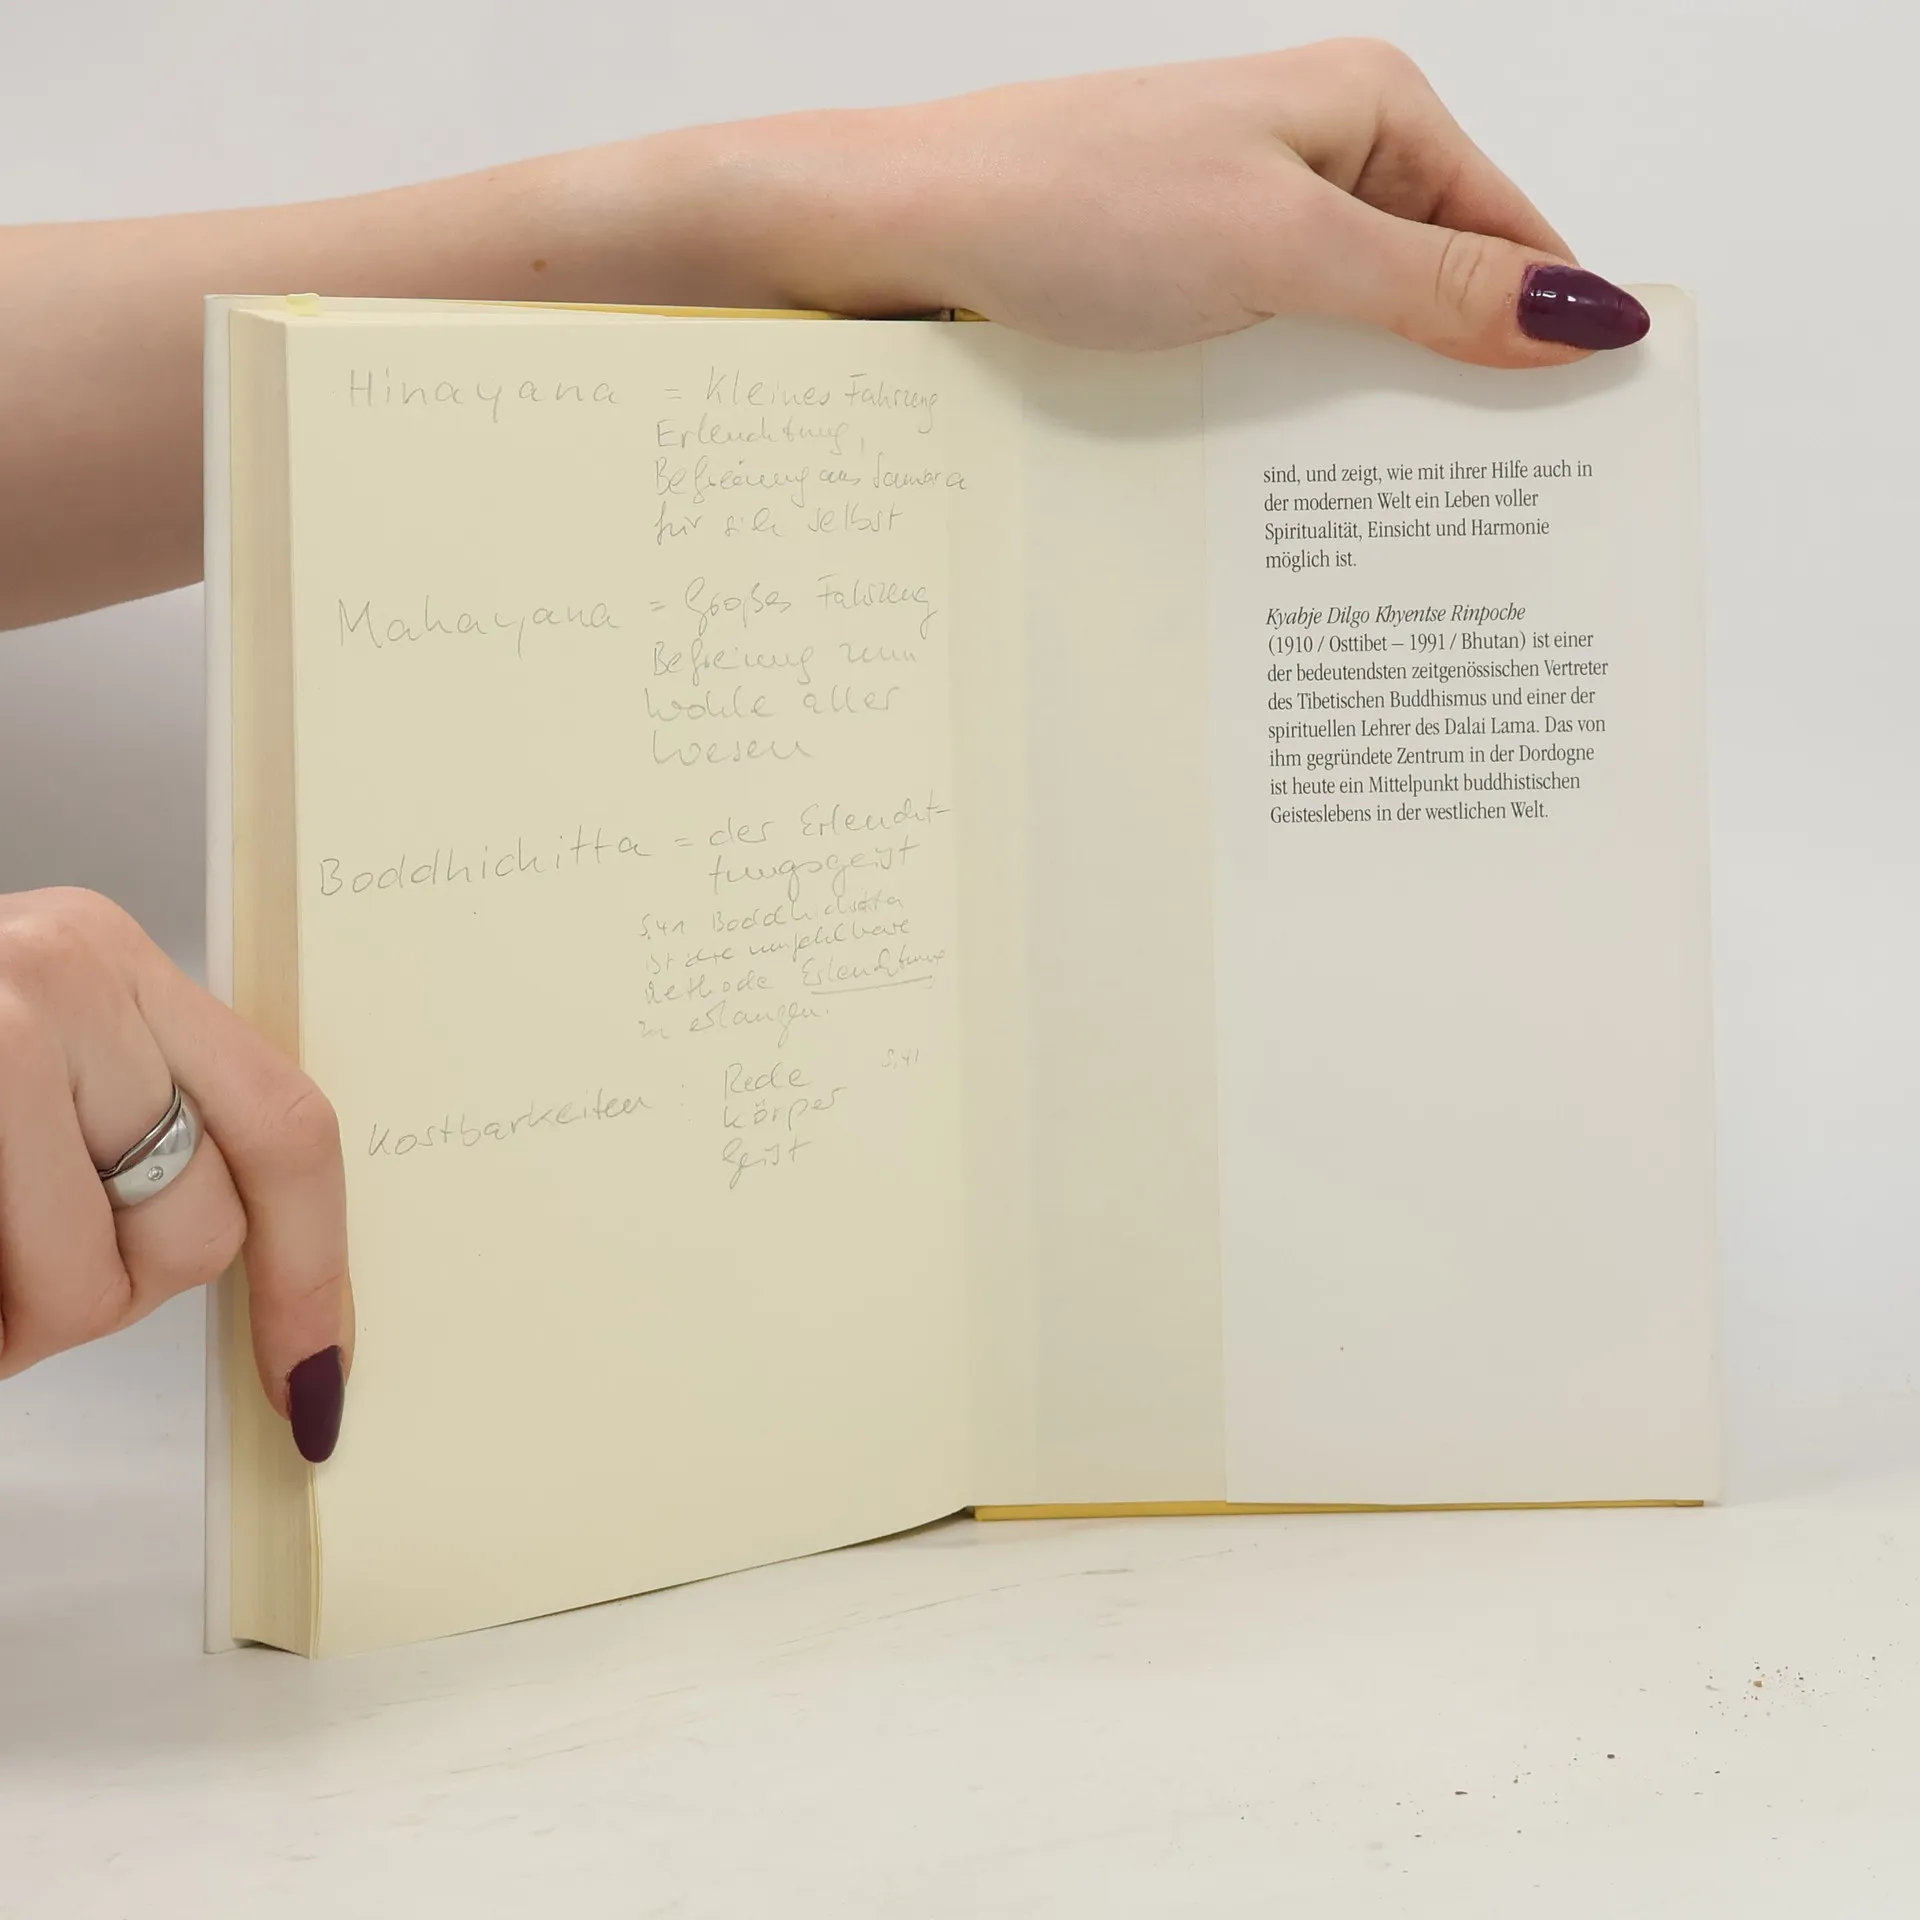 Hinayana = Kleines Fahrzeug
Erleuchtung,
Befreiung aus Samsara
für sich selbst
Mahayana = Großes Fahrzeug
Befreiung zum
Wohle aller
Wesen
Boddhichitta = der Erleuch-
tungsgeist
S.41 Boddhichitta
ist die unfehlbare
Methode Erleuchtung
zu erlangen.
Kostbarkeiten : Rede S.41
Körper
Geist
sind, und zeigt, wie mit ihrer Hilfe auch in
der modernen Welt ein Leben voller
Spiritualität, Einsicht und Harmonie
möglich ist.
Kyabje Dilgo Khyentse Rinpoche
(1910 / Osttibet – 1991 / Bhutan) ist einer
der bedeutendsten zeitgenössischen Vertreter
des Tibetischen Buddhismus und einer der
spirituellen Lehrer des Dalai Lama. Das von
ihm gegründete Zentrum in der Dordogne
ist heute ein Mittelpunkt buddhistischen
Geisteslebens in der westlichen Welt.